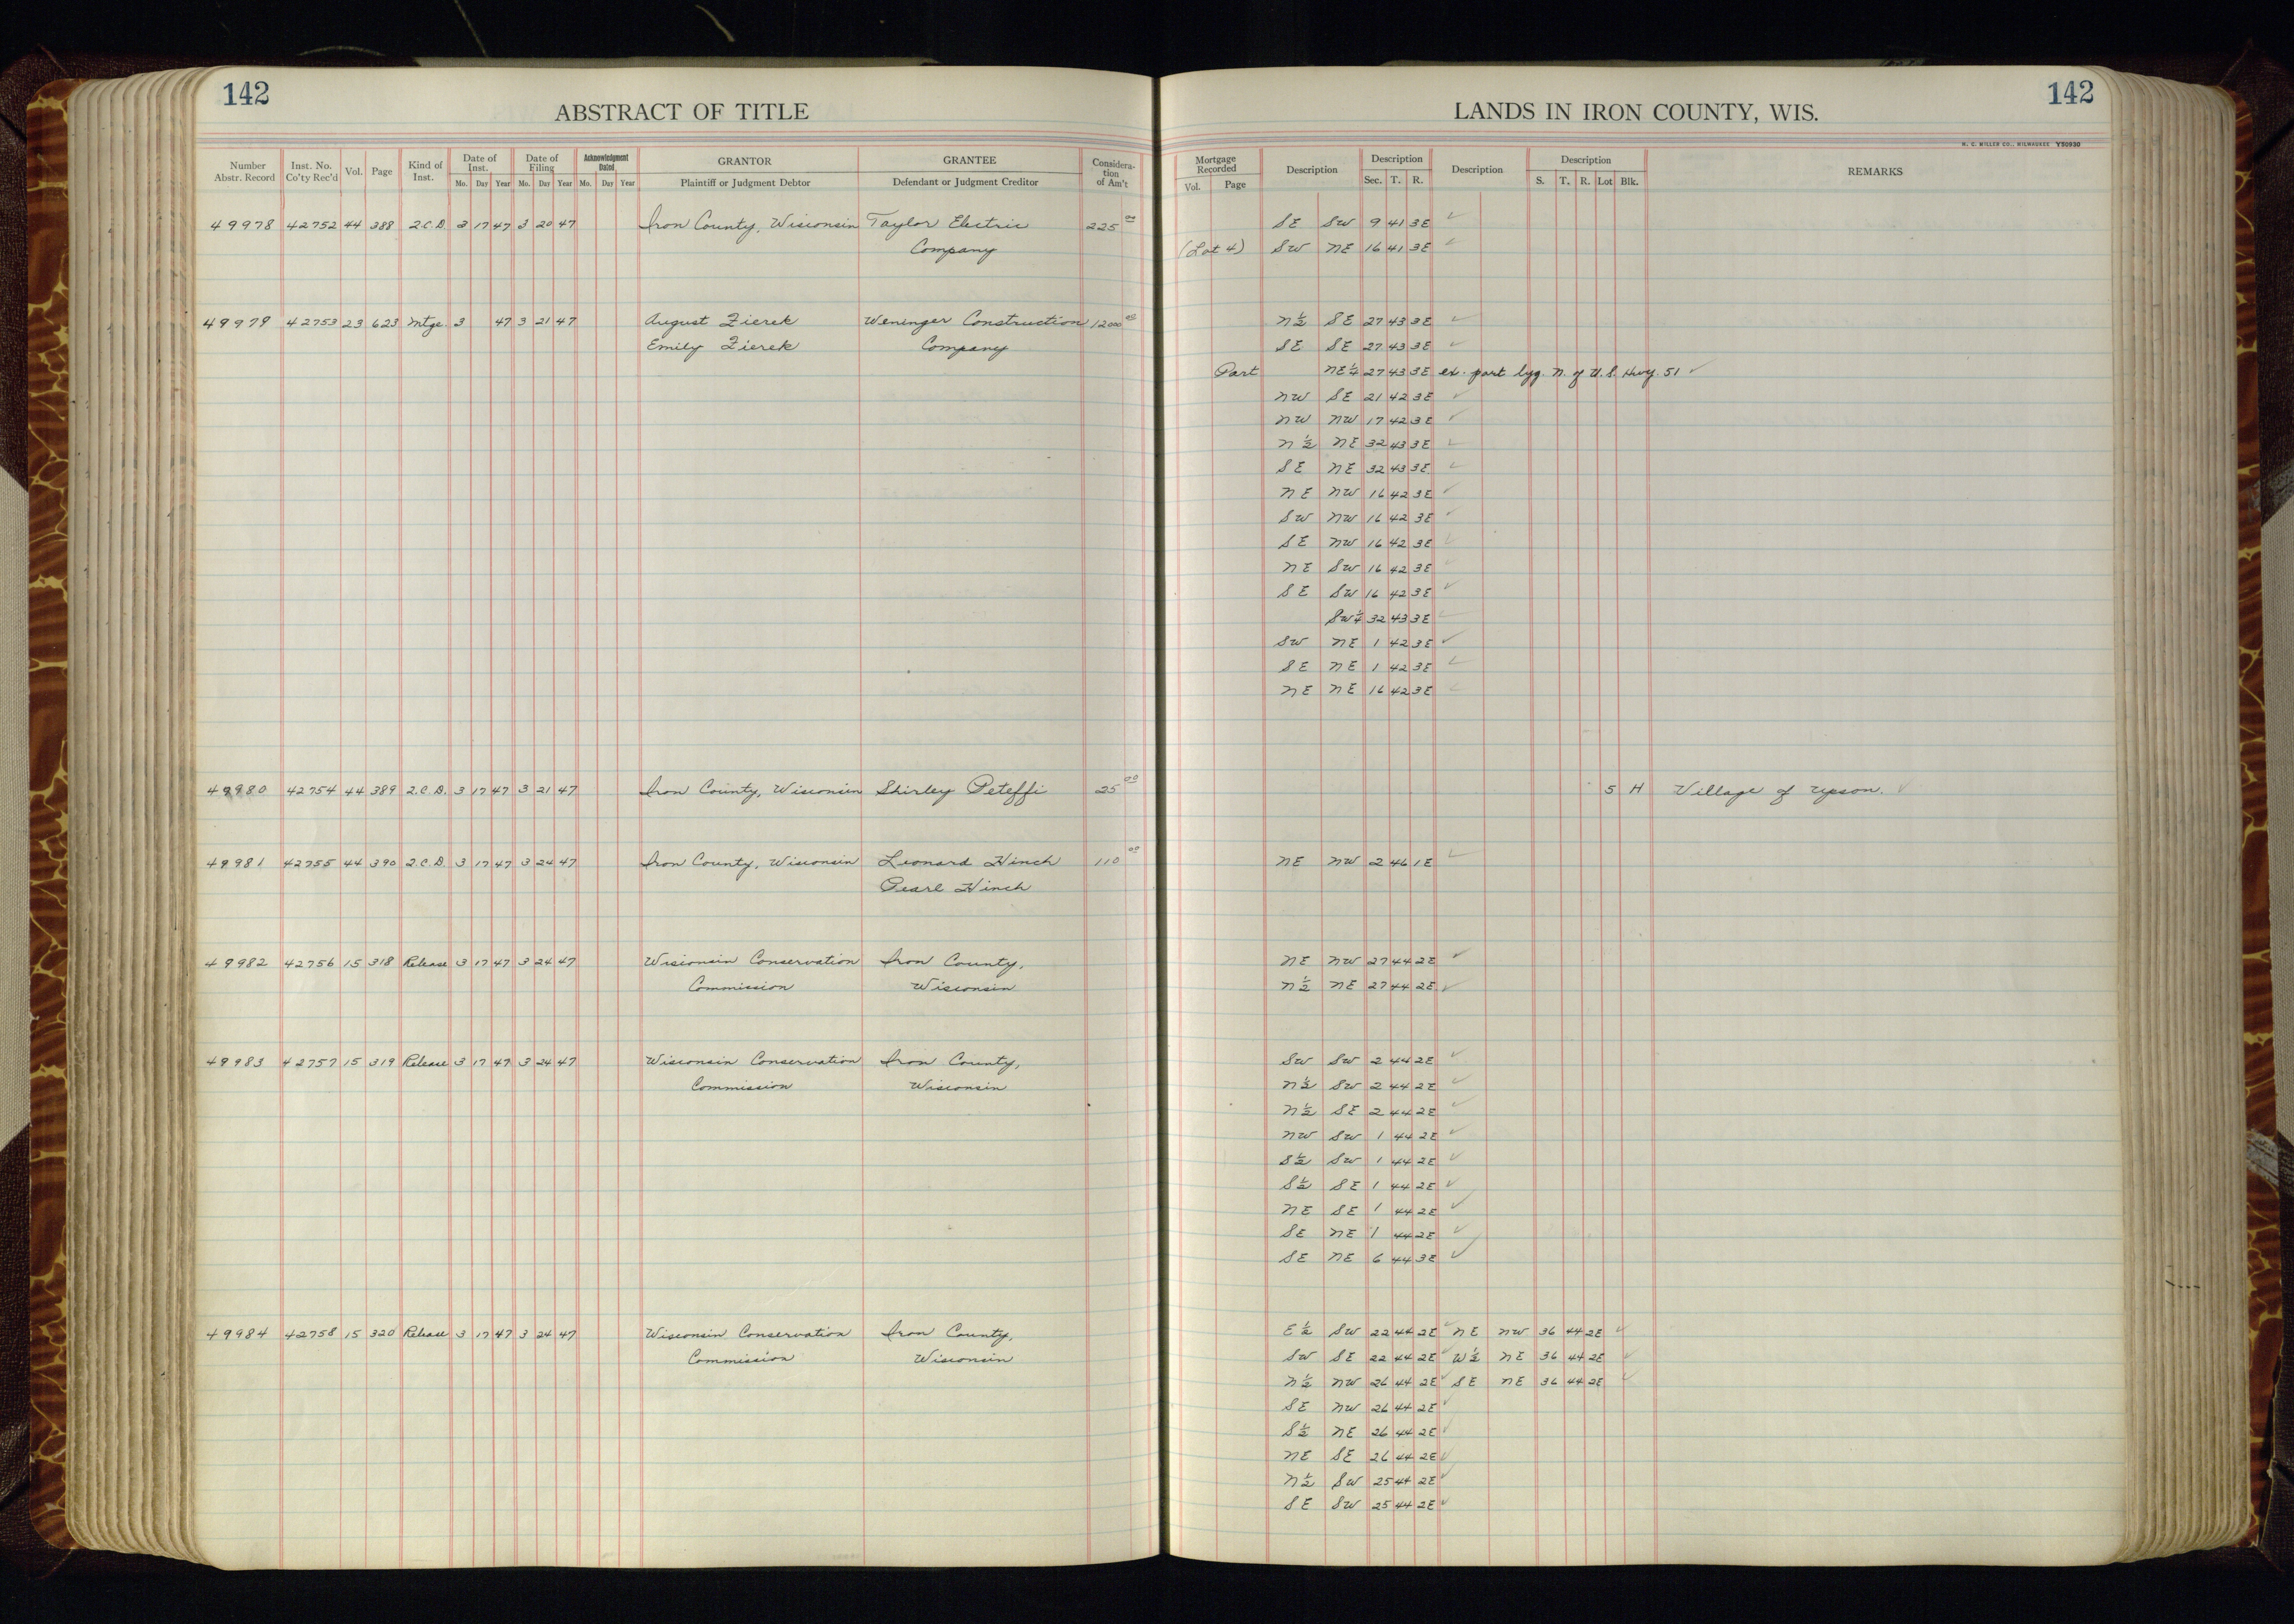 142
ABSTRACT OF TITLE
LANDS IN IRON COUNTY, WIS.
142
H. C. MILLER CO., MILWAUKEE Y50930
Number Abstr. Record | Inst. No. Co'ty Rec'd | Vol. | Page | Kind of Inst. | Date of Inst. Mo. Day Year | Date of Filing Mo. Day Year | Acknowledgment Dated Mo. Day Year | GRANTOR Plaintiff or Judgment Debtor | GRANTEE Defendant or Judgment Creditor | Considera-tion of Am't | Mortgage Recorded Vol. Page | Description | Description Sec. T. R. | Description | Description S. T. R. Lot Blk. | REMARKS
49978 42752 44 388 2.C.D. 3 17 47 3 20 47 Iron County, Wisconsin Taylor Electric 225 00 SE SW 9 41 3E ✓
Company (Lot 4) SW NE 16 41 3E ✓
49979 42753 23 623 Mtge. 3 47 3 21 47 August Zierek Weninger Construction 12000 00 N½ SE 27 43 3E ✓
Emily Zierek Company SE SE 27 43 3E ✓
Part NE¼ 27 43 3E ex. part lyg. N. of U.S. Hwy. 51 ✓
NW SE 21 42 3E ✓
NW NW 17 42 3E ✓
N½ NE 32 43 3E ✓
SE NE 32 43 3E ✓
NE NW 16 42 3E ✓
SW NW 16 42 3E ✓
SE NW 16 42 3E ✓
NE SW 16 42 3E ✓
SE SW 16 42 3E ✓
SW¼ 32 43 3E ✓
SW NE 1 42 3E ✓
SE NE 1 42 3E ✓
NE NE 16 42 3E ✓
49980 42754 44 389 2.C.D. 3 17 47 3 21 47 Iron County, Wisconsin Shirley Peteffi 25 00 5 H Village of Upson. ✓
49981 42755 44 390 2.C.D. 3 17 47 3 24 47 Iron County, Wisconsin Leonard Hinch 110 00 NE NW 2 46 1E ✓
Pearl Hinch
49982 42756 15 318 Release 3 17 47 3 24 47 Wisconsin Conservation Iron County, NE NW 27 44 2E ✓
Commission Wisconsin N½ NE 27 44 2E ✓
49983 42757 15 319 Release 3 17 47 3 24 47 Wisconsin Conservation Iron County, SW SW 2 44 2E ✓
Commission Wisconsin N½ SW 2 44 2E ✓
N½ SE 2 44 2E ✓
NW SW 1 44 2E ✓
S½ SW 1 44 2E ✓
S½ SE 1 44 2E ✓
NE SE 1 44 2E ✓
SE NE 1 44 2E ✓
SE NE 6 44 3E ✓
49984 42758 15 320 Release 3 17 47 3 24 47 Wisconsin Conservation Iron County, E½ SW 22 44 2E ✓ NE NW 36 44 2E ✓
Commission Wisconsin SW SE 22 44 2E W½ NE 36 44 2E ✓
N½ NW 26 44 2E ✓ SE NE 36 44 2E ✓
SE NW 26 44 2E ✓
S½ NE 26 44 2E ✓
NE SE 26 44 2E ✓
N½ SW 25 44 2E ✓
SE SW 25 44 2E ✓